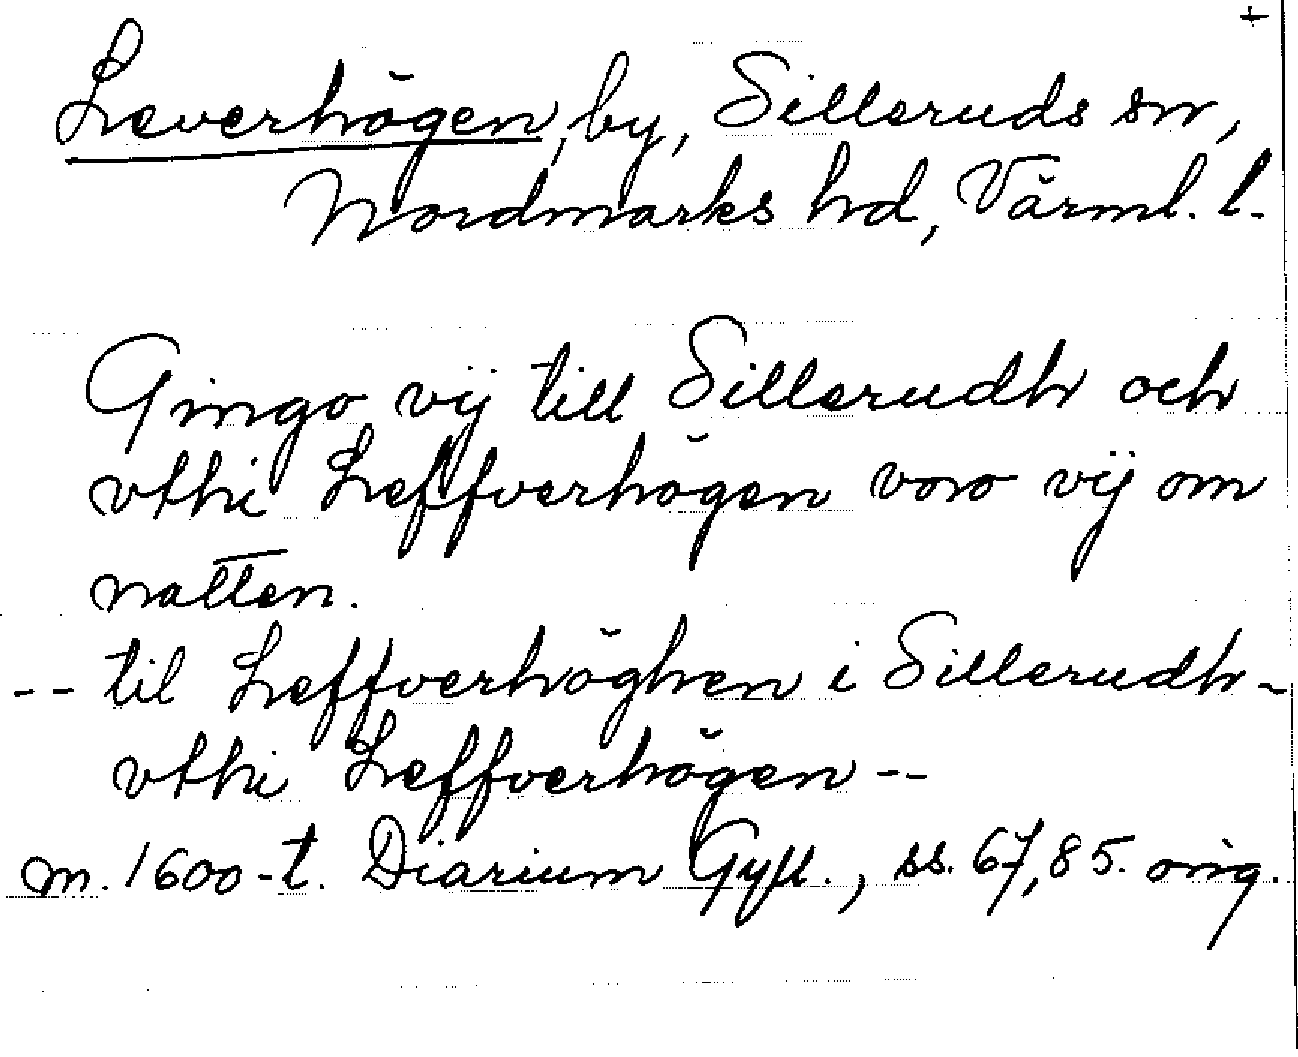 +
Leverhögen, by, Silleruds sn,
Nordmarks hd, Värml. l.
Gingo vij till Sillerudh och
vthi Leffverhögen voro vij om
natten.
-- til Leffverhöghen i Sillerudh -
vthi Leffverhögen --
m. 1600-t. Diarium Gyll., ss. 67, 85. orig.